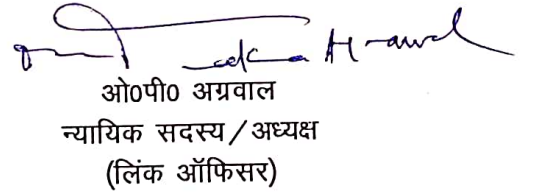 ओ0पी0 अग्रवाल
न्यायिक सदस्य/अध्यक्ष
(लिंक ऑफिसर)